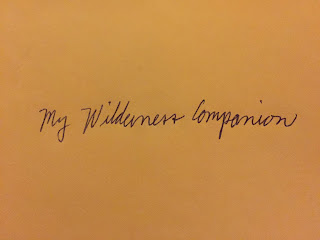 My Wilderness Companion